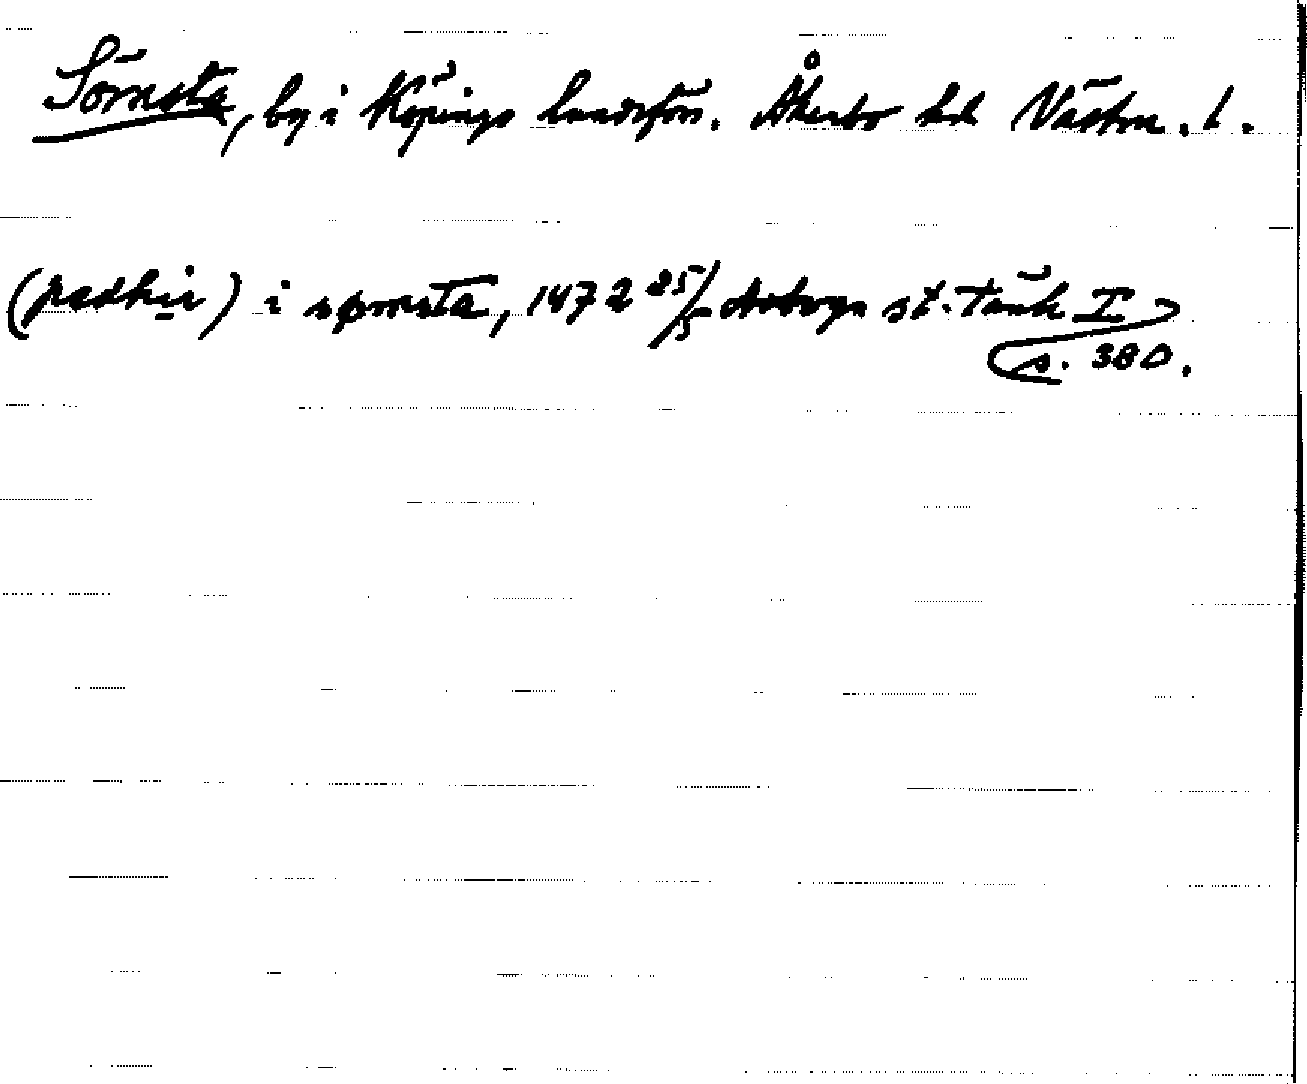 Sörmsta, by i Köpings landsförs. Åkerbo hd Västm. l.
(pædhir) i spmsta, 1472 25/5 Arboga st. Tänk I
s. 380.